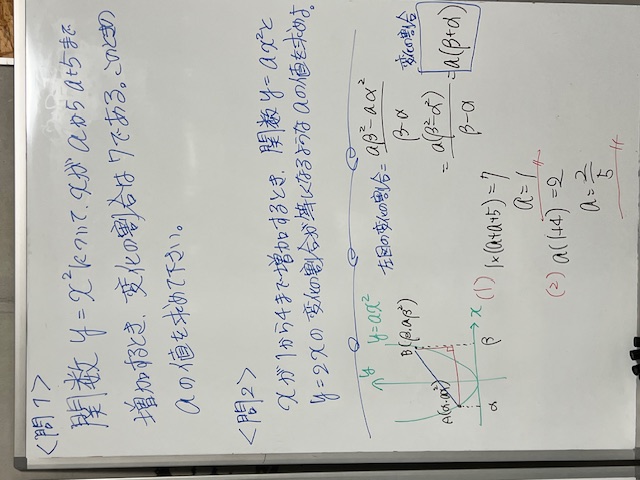 <問1>
関数 y=x²について、xがaからa+5まで
増加するとき、変化の割合は7である。このときの
aの値を求めて下さい。
<問2>
xが1から4まで増加するとき、関数 y=ax²と
y=2xの変化の割合が等しくなるようなaの値を求めよ。
y y=ax²
B(β,aβ²)
A(α,aα²)
α β x
左図の変化の割合= aβ²-aα² / β-α
= a(β²-α²) / β-α = a(β+α)
変化の割合
(1) 1×(a+a+5)=7
a=1
(2) a(1+4)=2
a=2/5